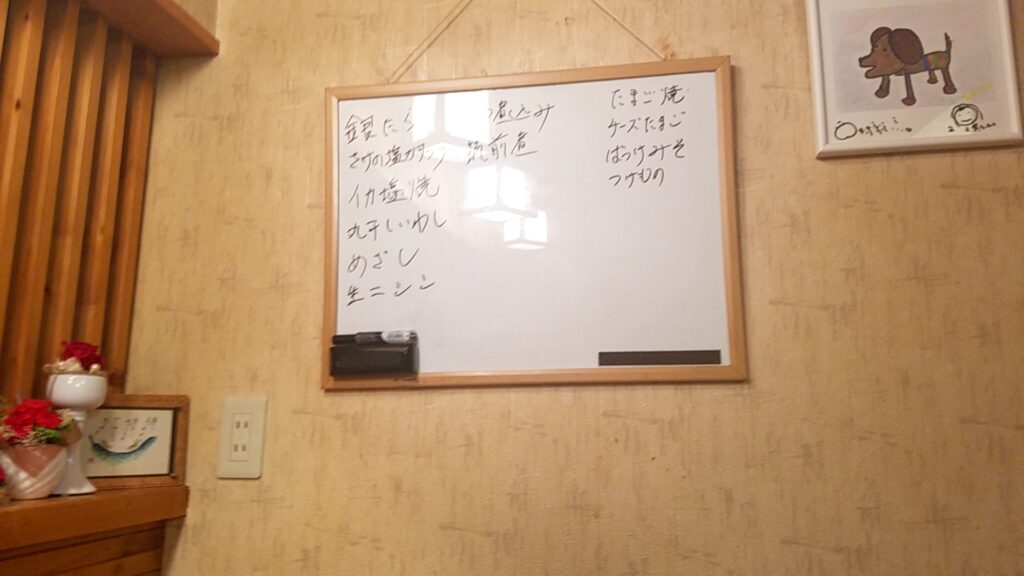 銀だら
煮込み
さけの塩カラづけ
筑前煮
イカ塩焼
丸干しいわし
めざし
生ニシン
たまご焼
チーズたまご
ばっけみそ
つけもの